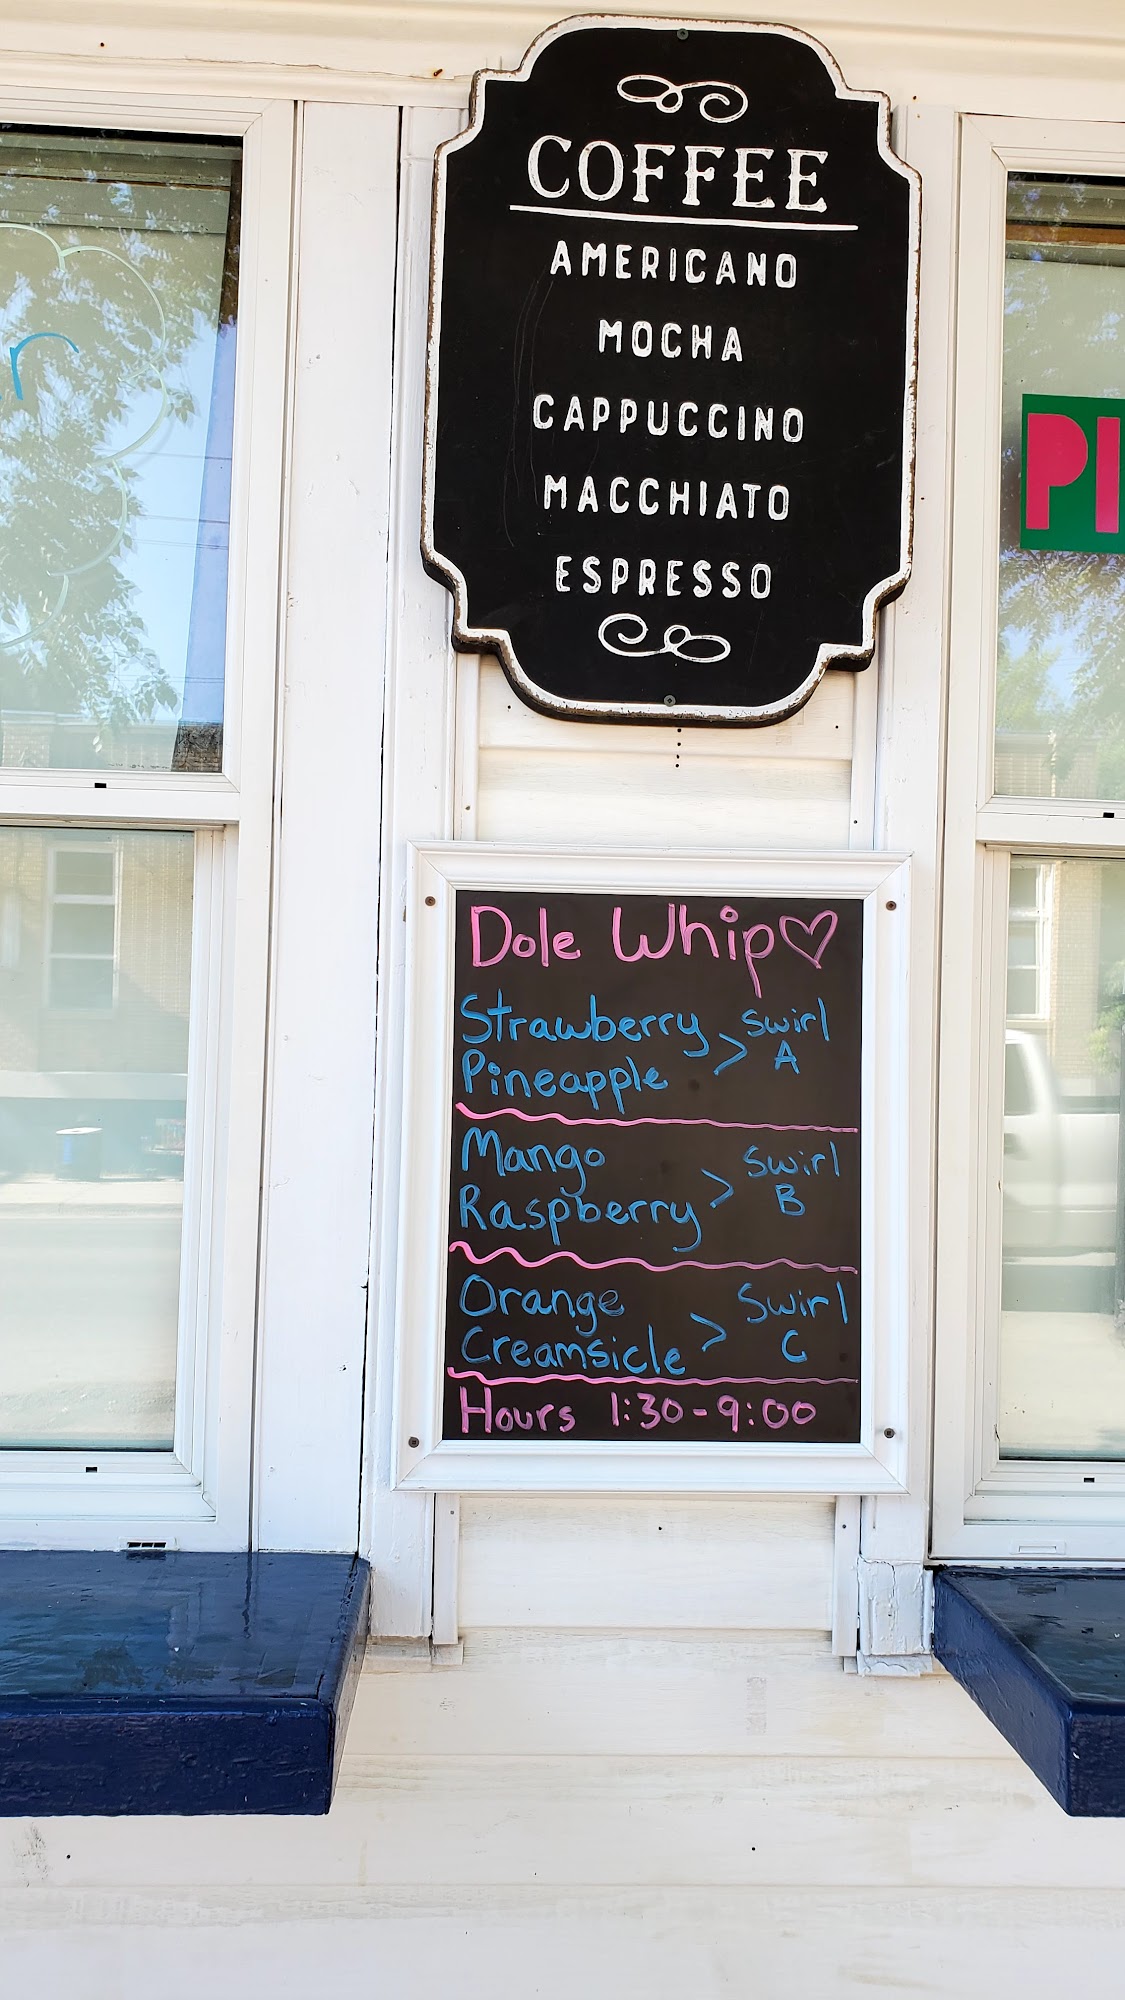 COFFEE
AMERICANO
MOCHA
CAPPUCCINO
MACCHIATO
ESPRESSO
Dole Whip
Strawberry > Swirl
Pineapple A
Mango > Swirl
Raspberry B
Orange > Swirl
Creamsicle C
Hours 1:30-9:00
PI
r